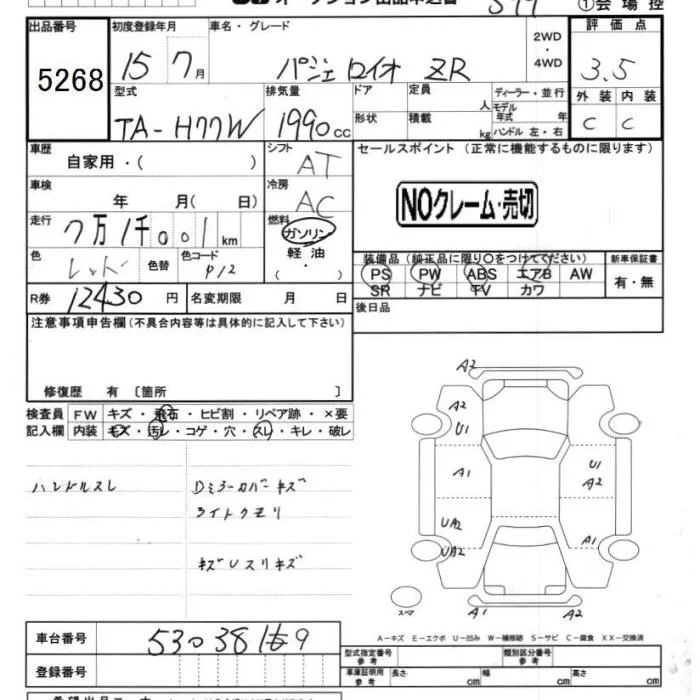 ①会場控
出品番号 初度登録年月 車名・グレード 2WD・4WD 評価点
5268 15 7月 パジェロイオ ZR 3.5
型式 排気量 ドア 定員 人 ディーラー・並行 外装 内装
TA-H77W 1990cc 形状 積載 kg モデル年式 年 ハンドル 左・右 C C
車歴 自家用・( ) シフト AT セールスポイント (正常に機能するものに限ります)
車検 年 月( 日) 冷房 AC
NOクレーム・売切
走行 7万1千001km 燃料 ガソリン
色 レッド 色替 色コード P12 軽油・( )
装備品 (純正品に限り〇をつけてください) 新車保証書
PS PW ABS エアB AW 有・無
SR ナビ TV カワ
R券 12430円 名変期限 月 日 後日品
注意事項申告欄(不具合内容等は具体的に記入して下さい)
修復歴 有 〔箇所 〕
検査員 FW キズ・飛石・ヒビ割・リペア跡・×要
記入欄 内装 キズ・汚レ・コゲ・穴・スレ・キレ・破レ
ハンドルスレ Dミラーカバーキズ
ライトクモリ
キズUスリキズ
A2
A2
U1
A1 U1
A2
UA2
UA2 A1
スペア A1 A2
A-キズ E-エクボ U-凹み W-補修跡 S-サビ C-腐食 XX-交換済
車台番号 5303816 9
型式指定番号 参考 類別区分番号 参考
登録番号 車庫証明用 参考 長さ cm 幅 cm 高さ cm